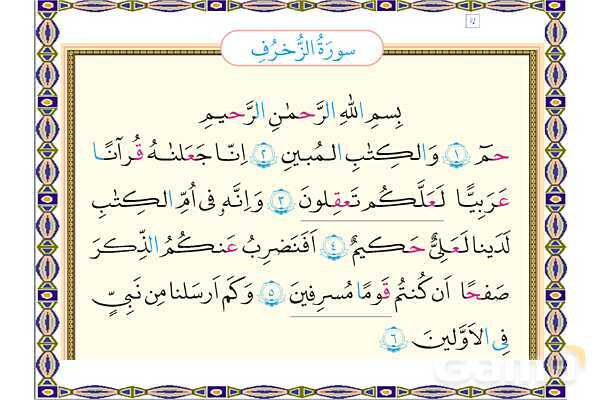 سورَةُ الزُّخرُفِ
بِسمِ اللّٰهِ الرَّحمٰنِ الرَّحيمِ
حمٓ ﴿١﴾ وَالكِتٰبِ المُبينِ ﴿٢﴾ اِنّا جَعَلنٰهُ قُرآنًا
عَرَبِيًّا لَعَلَّكُم تَعقِلونَ ﴿٣﴾ وَاِنَّهٗ فى اُمِّ الكِتٰبِ
لَدَينا لَعَلِىٌّ حَكيمٌ ﴿٤﴾ اَفَنَضرِبُ عَنكُمُ الذِّكرَ
صَفحًا اَن كُنتُم قَومًا مُسرِفينَ ﴿٥﴾ وَكَم اَرسَلنا مِن نَبِىٍّ
فِى الاَوَّلينَ ﴿٦﴾
Gama